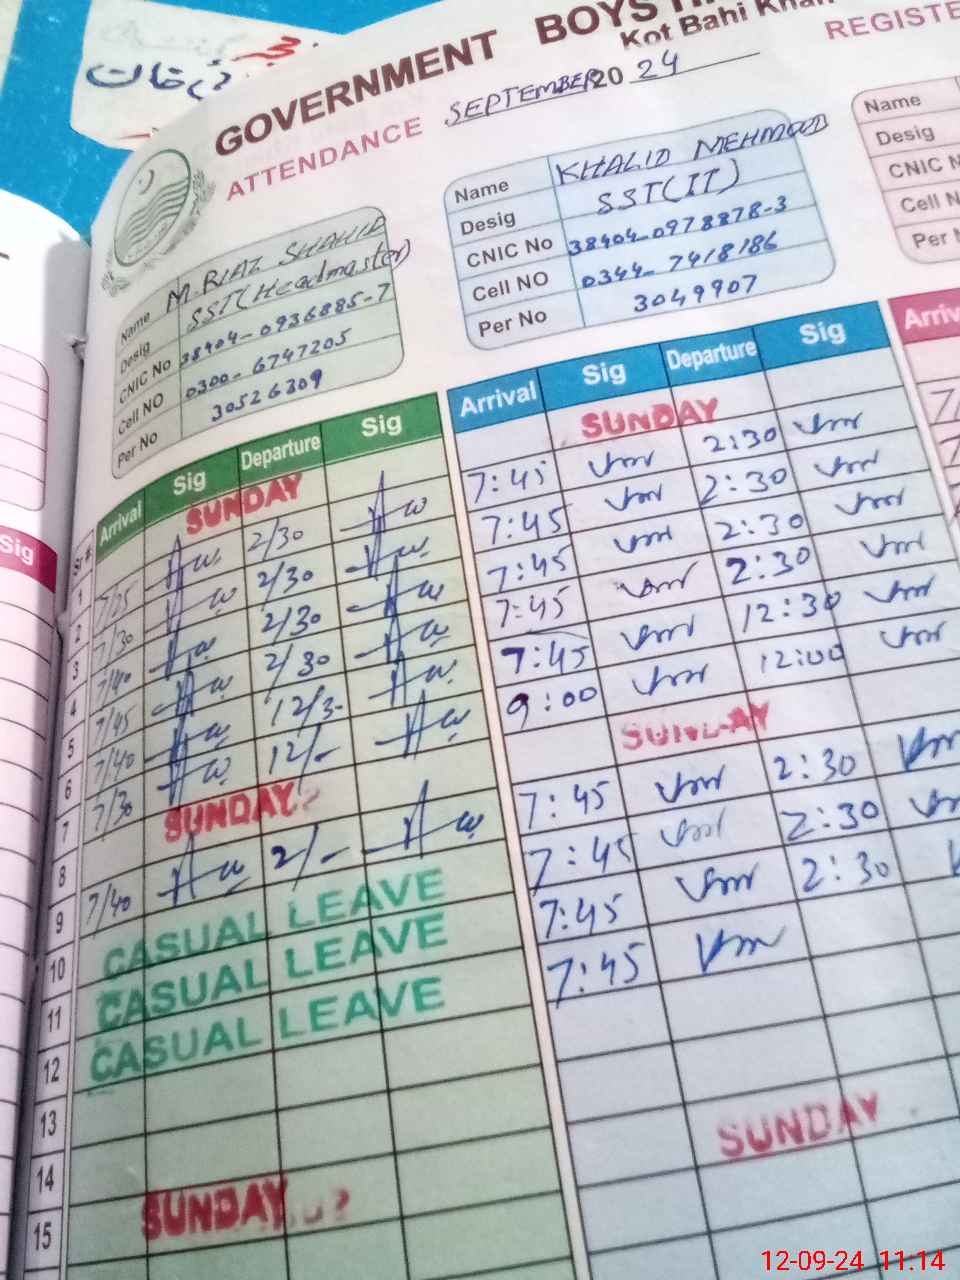 GOVERNMENT BOYS
Kot Bahi Khan
ATTENDANCE SEPTEMBER 2024 REGISTE
Name M.RIAZ SHAHID
Desig SST(Headmaster)
CNIC No 38404-0936885-7
Cell NO 0300-6747205
Per No 30526309
Name KHALID MEHMOOD
Desig SST(IT)
CNIC No 38404-0978878-3
Cell NO 0344-7418186
Per No 3049907
Name
Desig
CNIC N
Cell N
Per N
Sig
Sr # Arrival Sig Departure Sig
1 SUNDAY
2 7/25 2/30
3 7/30 2/30
4 7/40 2/30
5 7/45 2/30
6 7/40 12/3-
7 7/30 12/-
8 SUNDAY
9 7/40 2/-
10 CASUAL LEAVE
11 CASUAL LEAVE
12 CASUAL LEAVE
13
14
15 SUNDAY
Arrival Sig Departure Sig
SUNDAY
7:45 2:30
7:45 2:30
7:45 2:30
7:45 2:30
7:45 12:30
9:00 12:00
SUNDAY
7:45 2:30
7:45 2:30
7:45 2:30
7:45
SUNDAY
Arriv
12-09-24 11:14